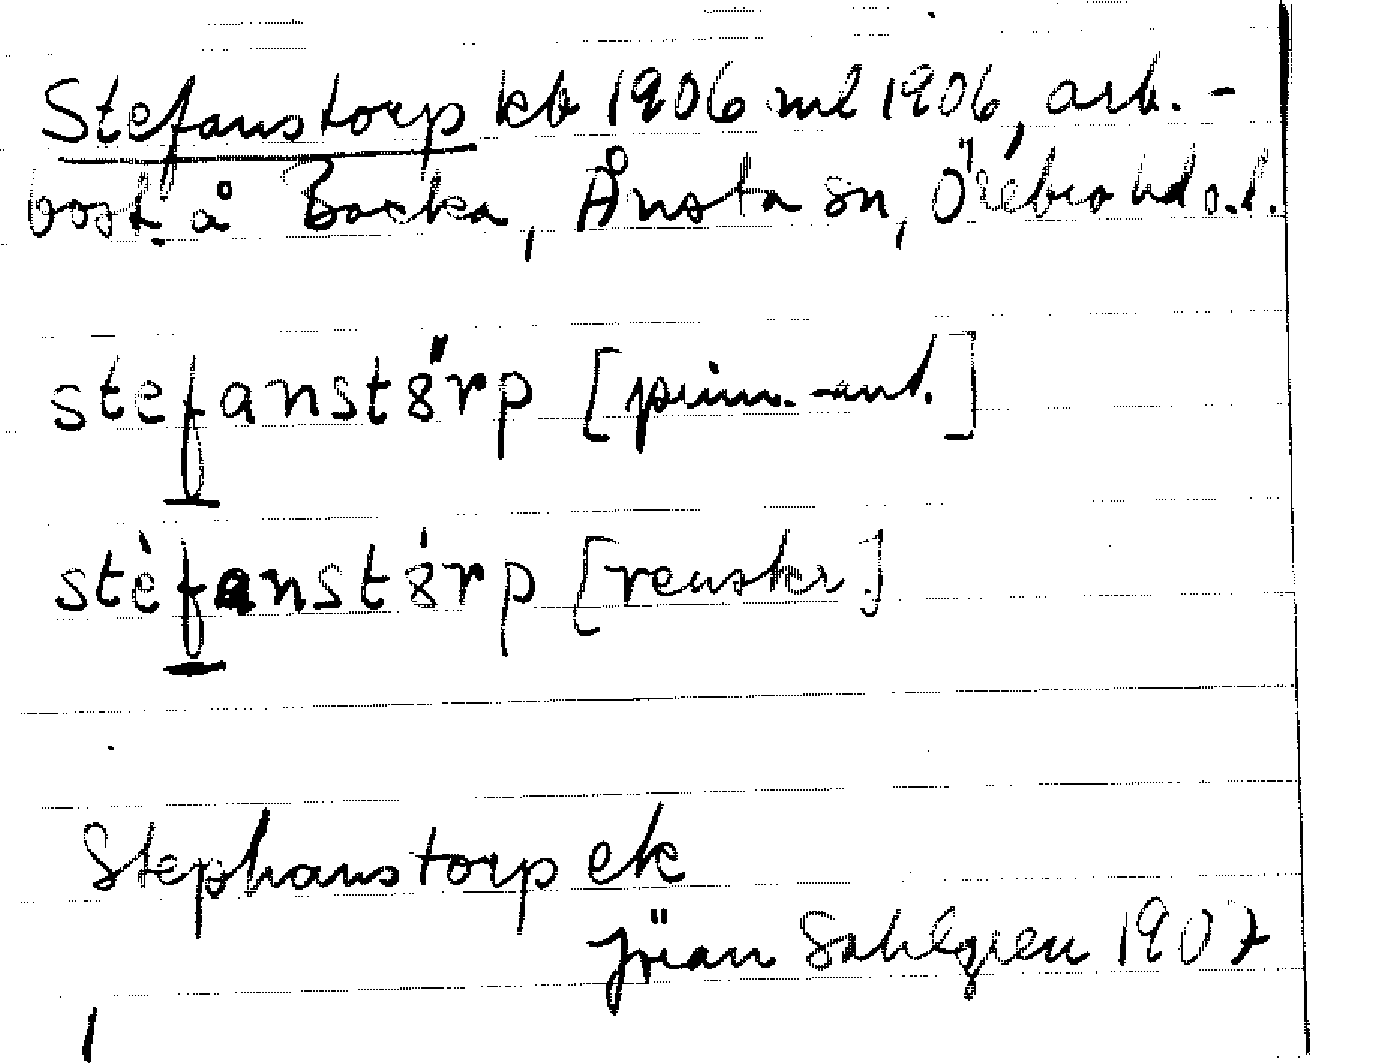 Stefanstorp kb 1906 ml 1906, arb.-
bost. å Backa, Ånsta sn, Örebro hd ö.l.
stefanstörp [prim.-ant.]
stèfanstȯrp [renskr.]
Stephanstorp ek
Jöran Sahlgren 1907